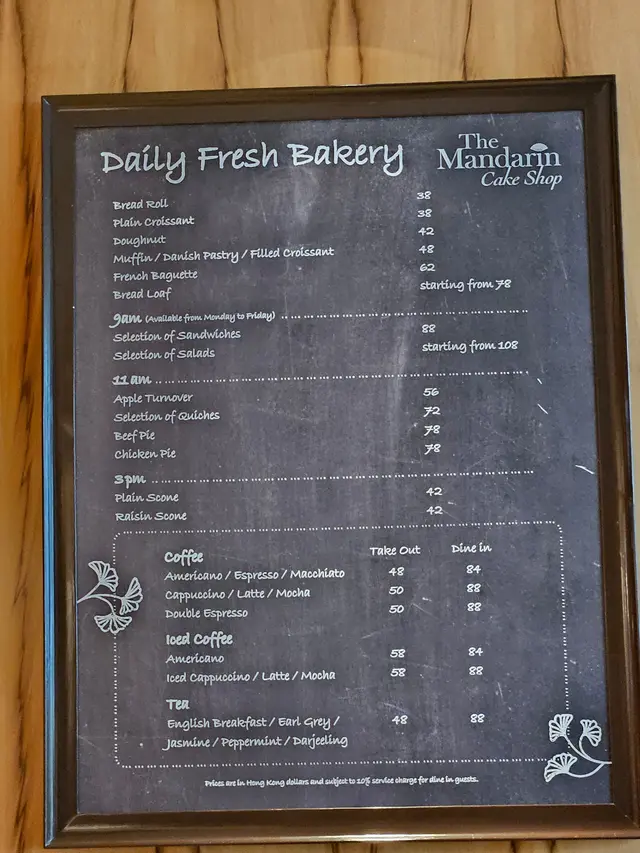 Daily Fresh Bakery
The
Mandarin
Cake Shop
Bread Roll 38
Plain Croissant 38
Doughnut 42
Muffin / Danish Pastry / Filled Croissant 48
French Baguette 62
Bread Loaf starting from 78
9am (Available from Monday to Friday)
Selection of Sandwiches 88
Selection of Salads starting from 108
11am
Apple Turnover 56
Selection of Quiches 72
Beef Pie 78
Chicken Pie 78
3pm
Plain Scone 42
Raisin Scone 42
Coffee Take Out Dine in
Americano / Espresso / Macchiato 48 84
Cappuccino / Latte / Mocha 50 88
Double Espresso 50 88
Iced Coffee
Americano 58 84
Iced Cappuccino / Latte / Mocha 58 88
Tea
English Breakfast / Earl Grey / 48 88
Jasmine / Peppermint / Darjeeling
Prices are in Hong Kong dollars and subject to 10% service charge for dine in guests.